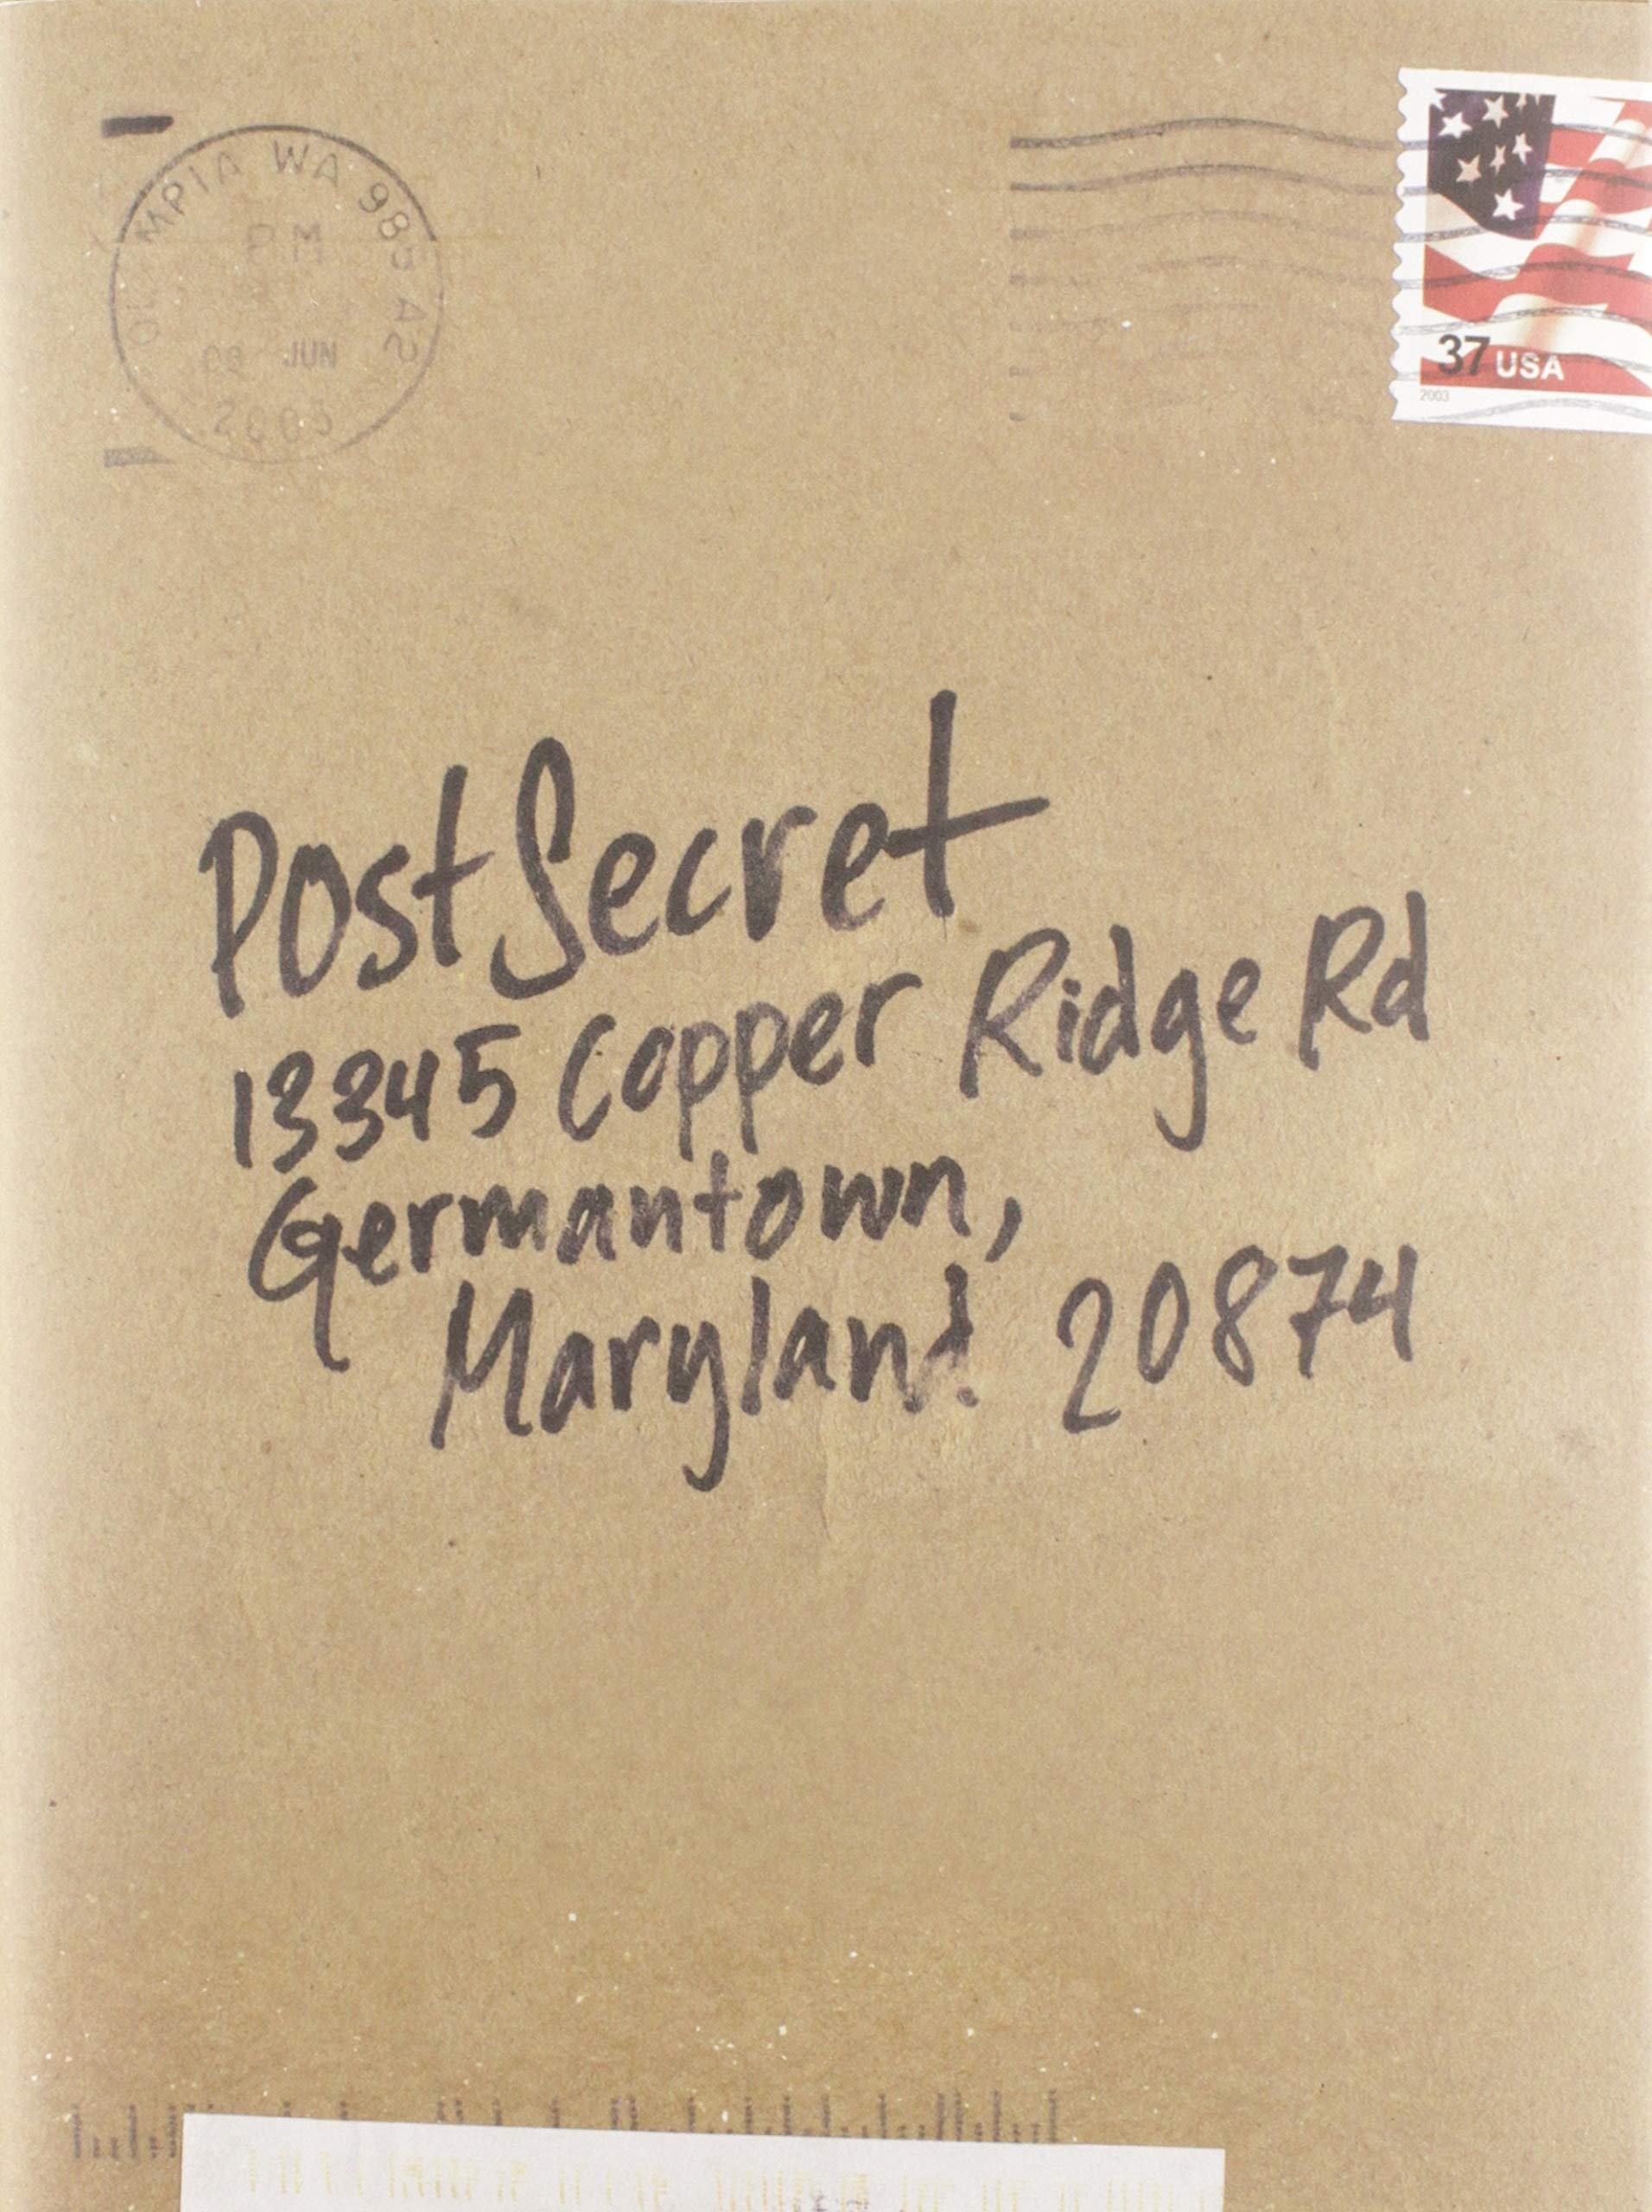 OLYMPIA WA 985
PM
JUN
37 USA
2003
PostSecret
13345 Copper Ridge Rd
Germantown,
Maryland 20874